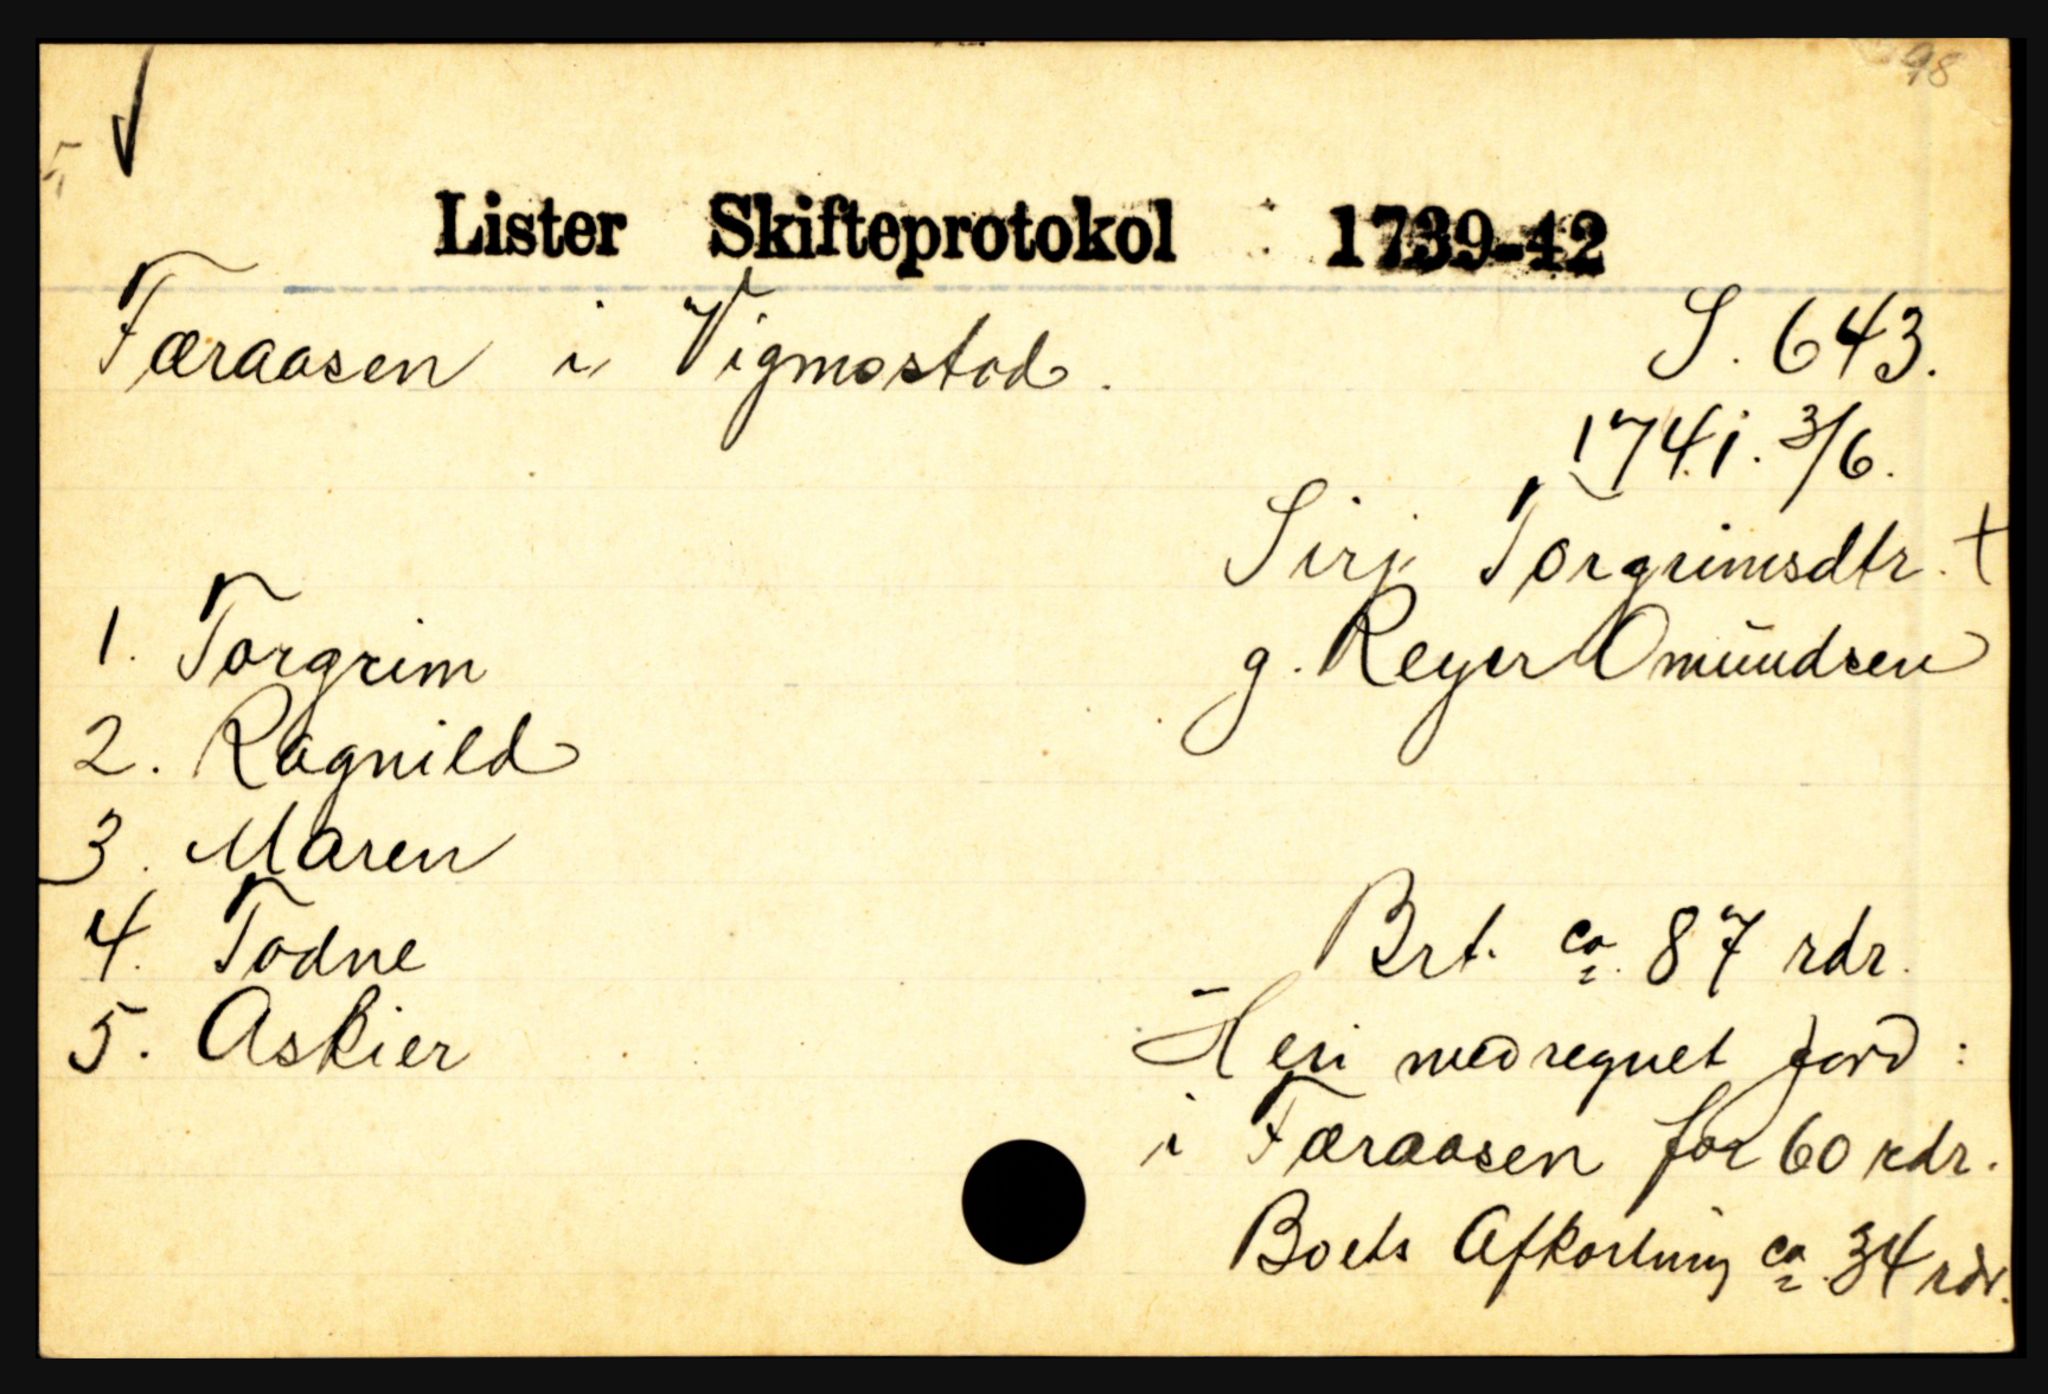 98
Lister Skifteprotokol 1739-42
Færaasen i Vigmostad.
S. 643.
1741. 3/6.
Sirj Torgrimsdtr. +
g. Reyer Omŭndsen
1. Torgrim
2. Ragnild
3. Maren
4. Todne
5. Askier
Brt. ca. 87 rdr.
Heri medregnet Jord:
i Færaasen for 60 rdr.
Boets Afkortning ca. 34 rdr.